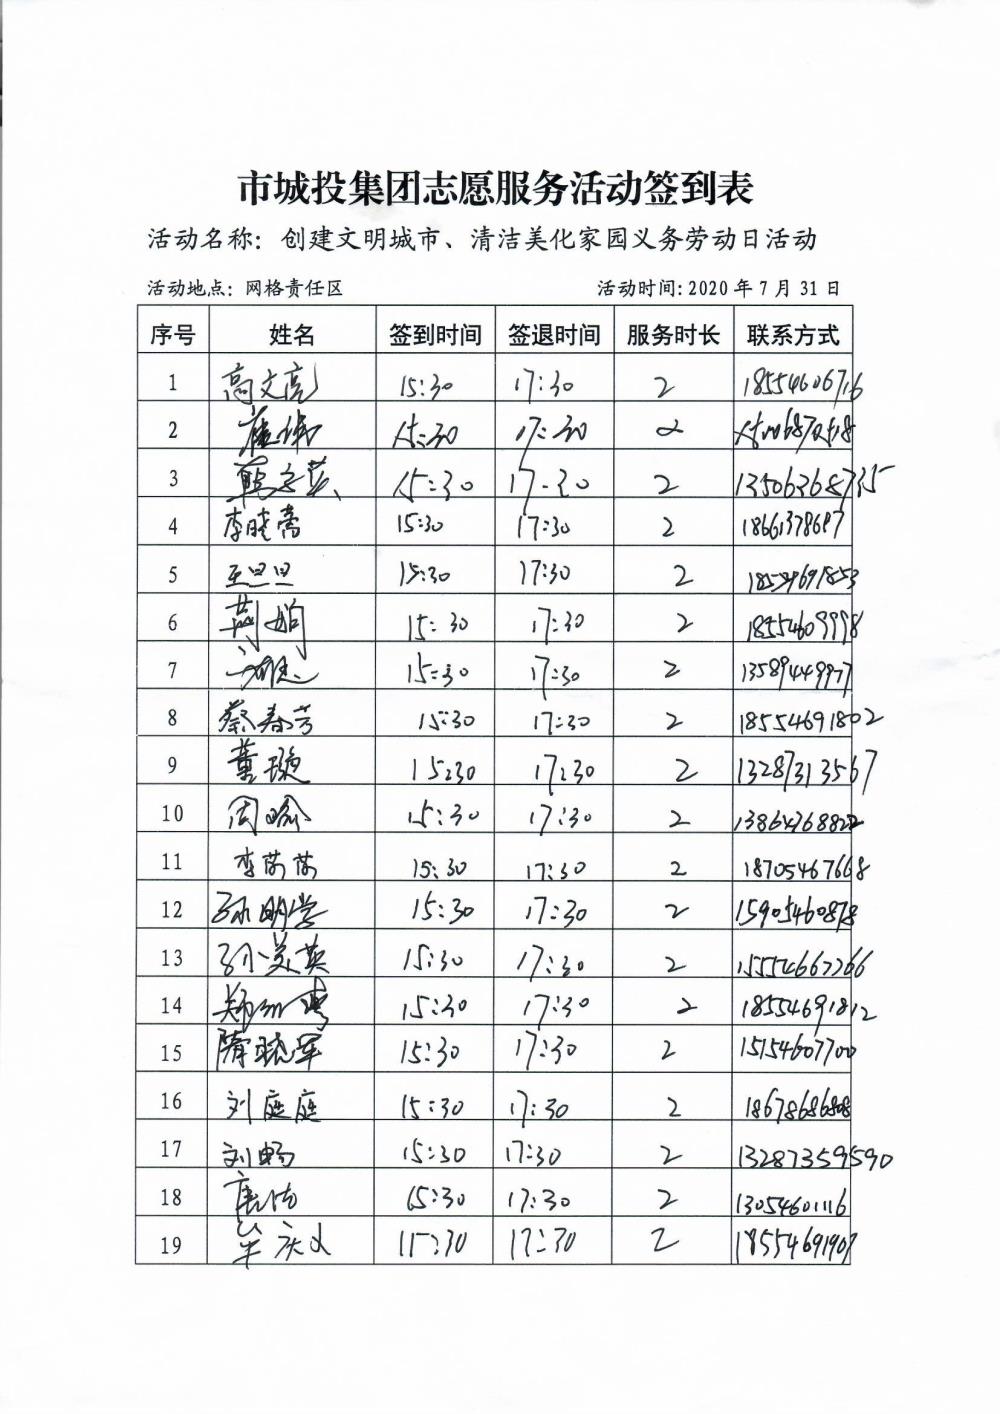 市城投集团志愿服务活动签到表
活动名称：创建文明城市、清洁美化家园义务劳动日活动
活动地点：网格责任区 活动时间:2020年7月31日
序号 姓名 签到时间 签退时间 服务时长 联系方式
1 高文亮 15:30 17:30 2 18554606716
2 15:30 17:30 2
3 15:30 17:30 2 13506368735
4 李晓蕾 15:30 17:30 2 18661378687
5 王旦旦 15:30 17:30 2
6 15:30 17:30 2 18554609998
7 15:30 17:30 2 13589449977
8 蔡春芳 15:30 17:30 2 18554691802
9 董璇 15:30 17:30 2 13287313567
10 周瑜 15:30 17:30 2 13864768822
11 李芮芮 15:30 17:30 2 18705467668
12 孙明学 15:30 17:30 2 15905460878
13 孙美英 15:30 17:30 2 15554667266
14 15:30 17:30 2 18554691812
15 隋晓军 15:30 17:30 2 15154607700
16 刘庭庭 15:30 17:30 2 18678686808
17 刘畅 15:30 17:30 2 13287359590
18 唐洁 15:30 17:30 2 13054601116
19 15:30 17:30 2 18554691907